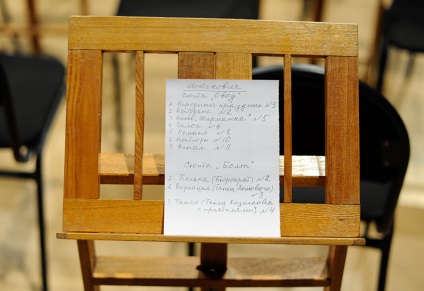 Шостакович
Сюита „Овод"
1. Народный праздник №3
2. №2
3. „Шарманка" №5
4. №6
5. Романс №8
6. Ноктюрн №10
7. Финал №11
Сюита „Болт"
1. Полька (Бюрократ) №2
2. Вариации (Танец
№3
3. Танго (Танец Козелкова
с приятелями) №4